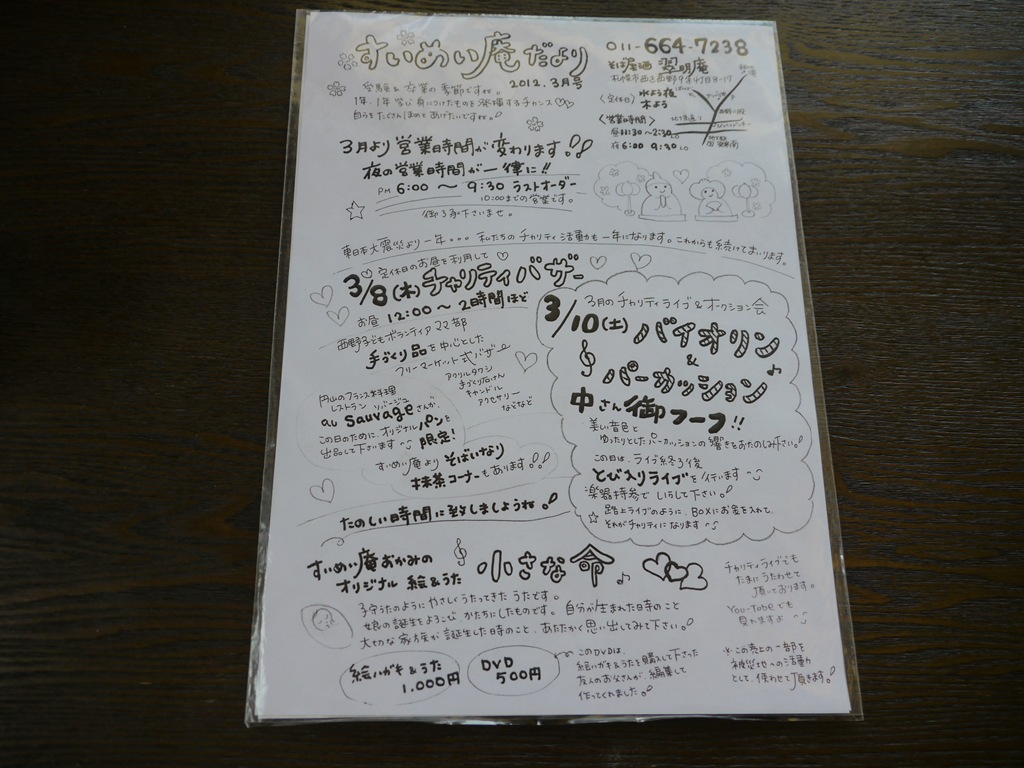 すいめい庵だより
2012.3月号
受験&卒業の季節ですね。
1年、1年学び身につけたものを発揮するチャンス
自分をたくさんほめてあげたいですね。
011-664-7238
そば居酒 翠明庵
札幌市西区西野9条4丁目8-17
〈定休日〉水よう夜
木よう
〈営業時間〉
昼11:30〜2:30LO
夜6:00 9:30LO
3月より営業時間が変わります!!
夜の営業時間が一律に!!
PM 6:00 〜 9:30 ラストオーダー
10:00までの営業です。
御了承下さいませ。
東日本大震災より一年・・・・ 私たちのチャリティ活動も一年になります。これからも続けてまいります。
定休日のお昼を利用して
3/8(木)チャリティバザー
お昼 12:00〜2時間ほど
西野子どもボランティアママ部
手づくり品を中心とした
フリーマーケット式バザー
アクリルタワシ
手づくり石けん
キャンドル
アクセサリー
などなど
円山のフランス料理
レストラン
au sauvageさんが、
この日のために、オリジナルパンを
出品して下さいます 限定!
すいめい庵より そばいなり
抹茶コーナーもあります!!
たのしい時間に致しましようね!
3月のチャリティライブ&オークション会
3/10(土) バイオリン
&
パーカッション
中さん御フーフ!!
美しい音色と
ゆったりとしたパーカッションの響きをおたのしみ下さい!
この日は、ライブ終了後
とび入りライブを行います
楽器持参で いらして下さい!
☆ 路上ライブのように、BOXにお金を入れて、
それがチャリティになります
すいめい庵おかみの
オリジナル 絵&うた
小さな命
子守うたのようにやさしくうたってきた うたです。
娘の誕生をよろこび かたちにしたものです。自分が生まれた日時のこと
大切な家族が誕生した時のこと、あたたかく思い出してみて下さい。
絵ハガキ&うた
1.000円
DVD
500円
このDVDは、
絵ハガキ&うたを購入して下さった
友人のお父さんが、編集して
作ってくれました。
チャリティライブでも
たまにうたわせて
頂いております。
You-Tobeでも
見れますよ
※この売上の一部を
被災地への活動
として、使わせて頂きます。